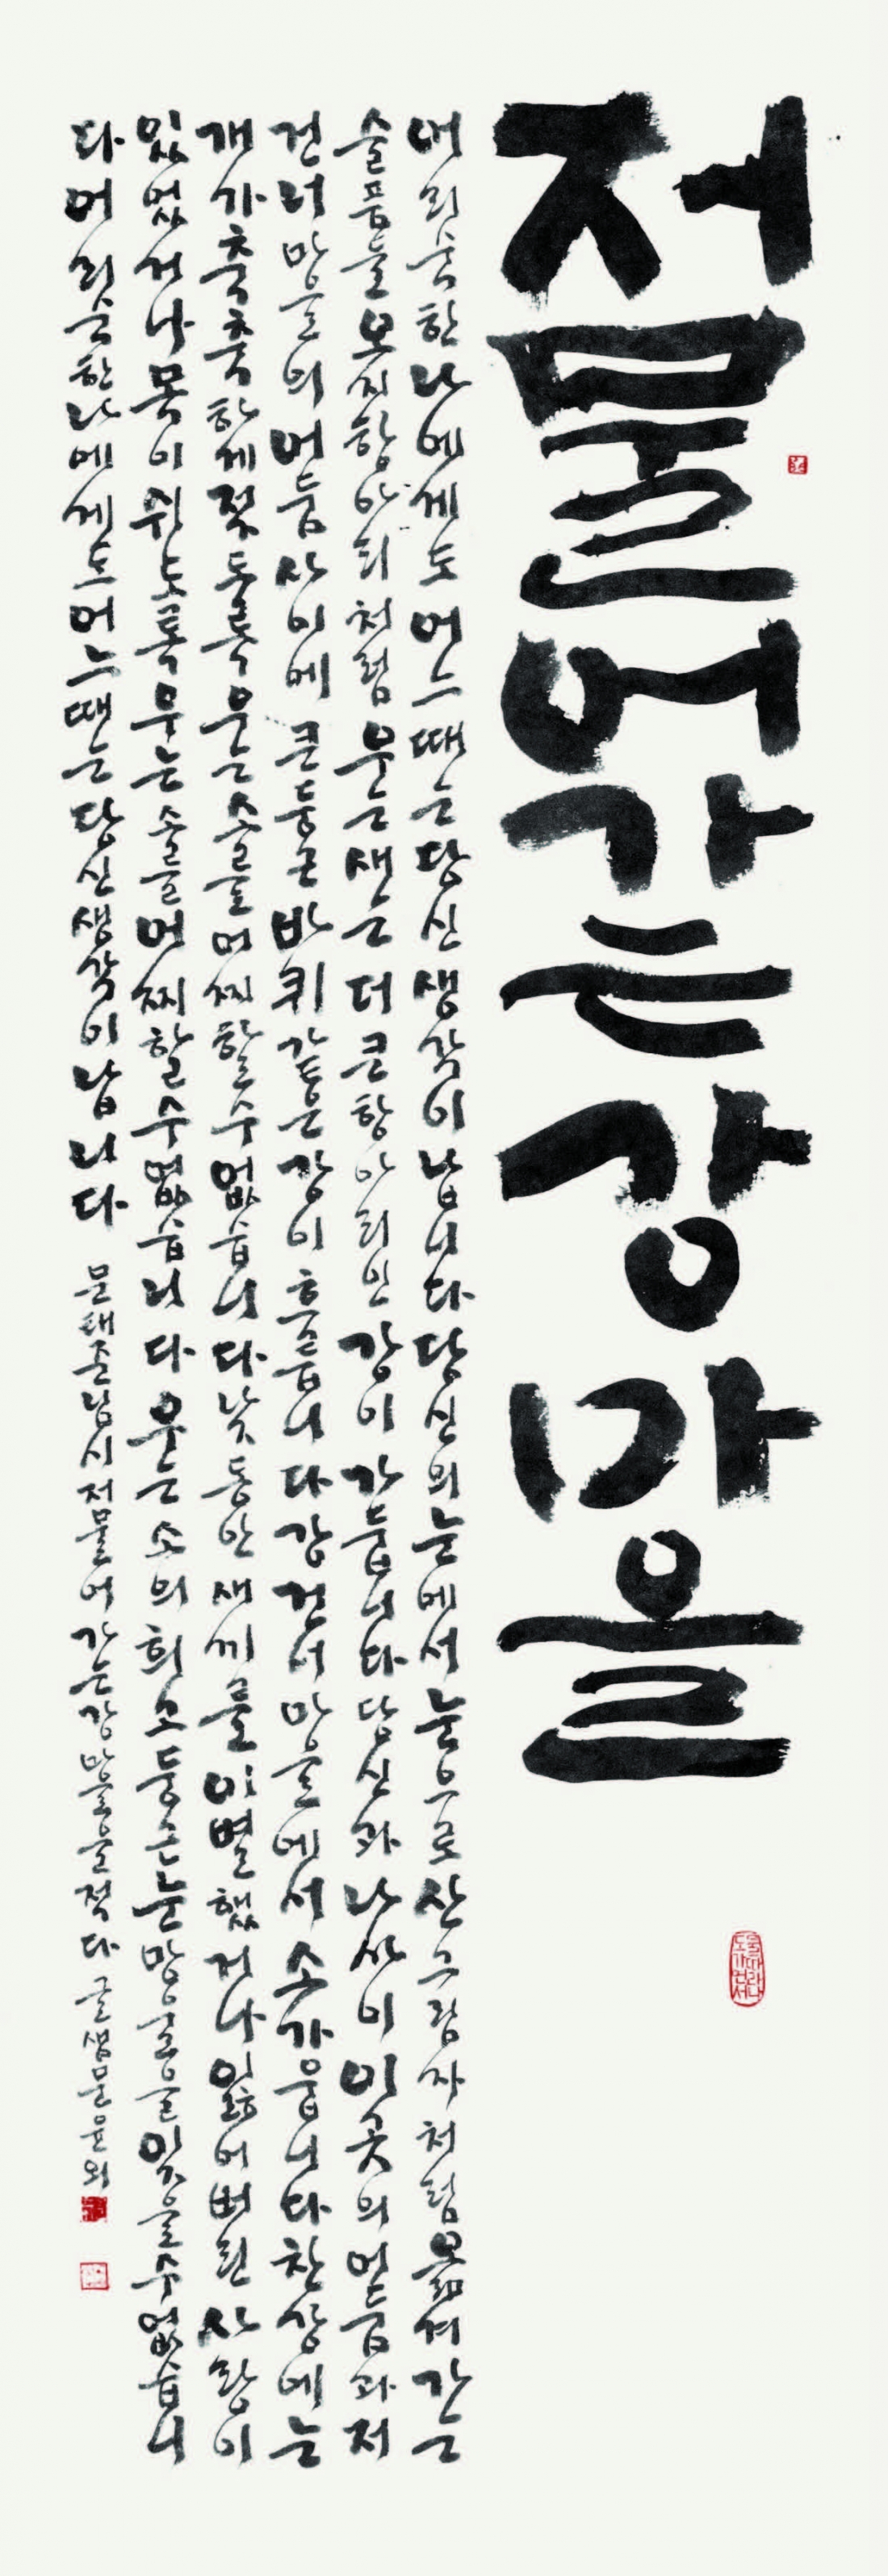 저물어가는강마을
어리숙한나에게도어느때는당신생각이납니다당신의눈에서눈으로산그림자처럼옮겨가는
슬픔들오지항아리처럼우는새는더큰항아리인강이가둡니다당신과나사이이곳의어둠과저
건너마을의어둠사이에큰둥근바퀴같은강이흐릅니다강건너마을에서소가웁니다찬강에는
개가축축하게젖도록우는소를어찌할수없습니다낮동안새끼를이별했거나잃어버린사랑이
있었거나목이쉬도록우는소를어찌할수없습니다우는소의희고둥근눈망울을잊을수없습니
다어리숙한나에게도어느때는당신생각이납니다 문태준님시저물어가는강마을을적다 글샘문윤외